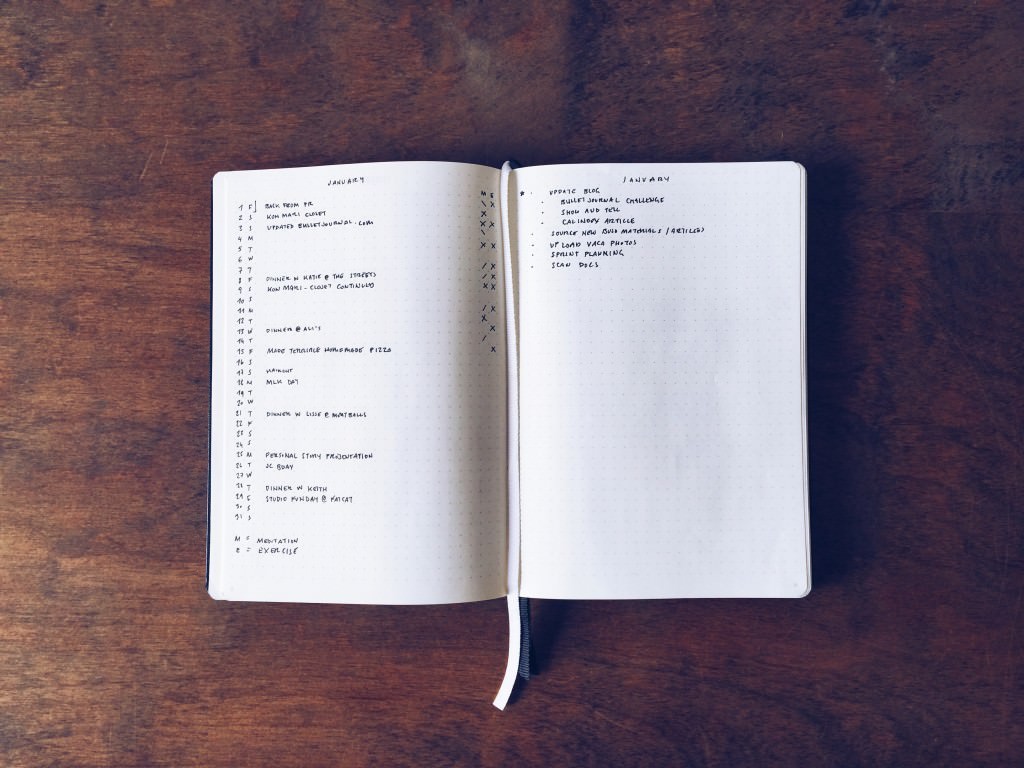 JANUARY
M E
1 F BACK FROM PR \ X
2 S KON MARI CLOSET X
3 S UPDATED BULLETJOURNAL.COM X X
4 M \
5 T X X
6 W
7 T / X
8 F DINNER W KATIE @ THE STREETS / X
9 S KON MARI - CLOSET CONTINUED X X
10 S
11 M / X
12 T X
13 W DINNER @ ALI'S X
14 T /
15 F MADE TERRIBLE HOMEMADE PIZZA X
16 S
17 S HAIRCUT
18 M MLK DAY
19 T
20 W
21 T DINNER W LISSE @ MEATBALLS
22 F
23 S
24 S
25 M PERSONAL STORY PRESENTATION
26 T JC BDAY
27 W
28 T DINNER W KEITH
29 F STUDIO FUNDAY @ FATCAT
30 S
31 S
M = MEDITATION
E = EXERCISE
JANUARY
* · UPDATE BLOG
· BULLET JOURNAL CHALLENGE
· SHOW AND TELL
· CALINDEX ARTICLE
· SOURCE NEW BUJO MATERIALS / ARTICLES
· UPLOAD VACA PHOTOS
· SPRINT PLANNING
· SCAN DOCS